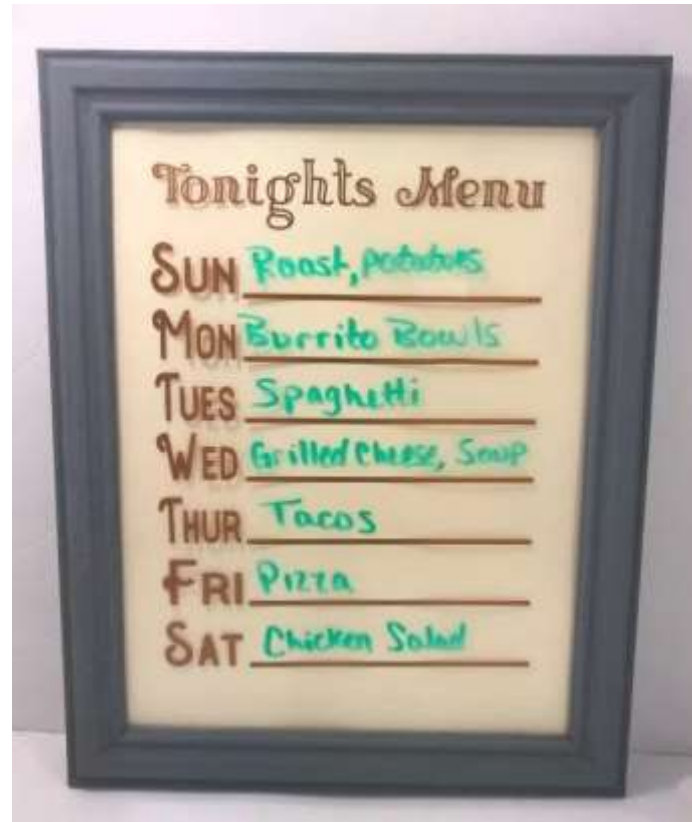 Tonights Menu
SUN Roast, potatoes
MON Burrito Bowls
TUES Spaghetti
WED Grilled Cheese, Soup
THUR Tacos
FRI Pizza
SAT Chicken Salad